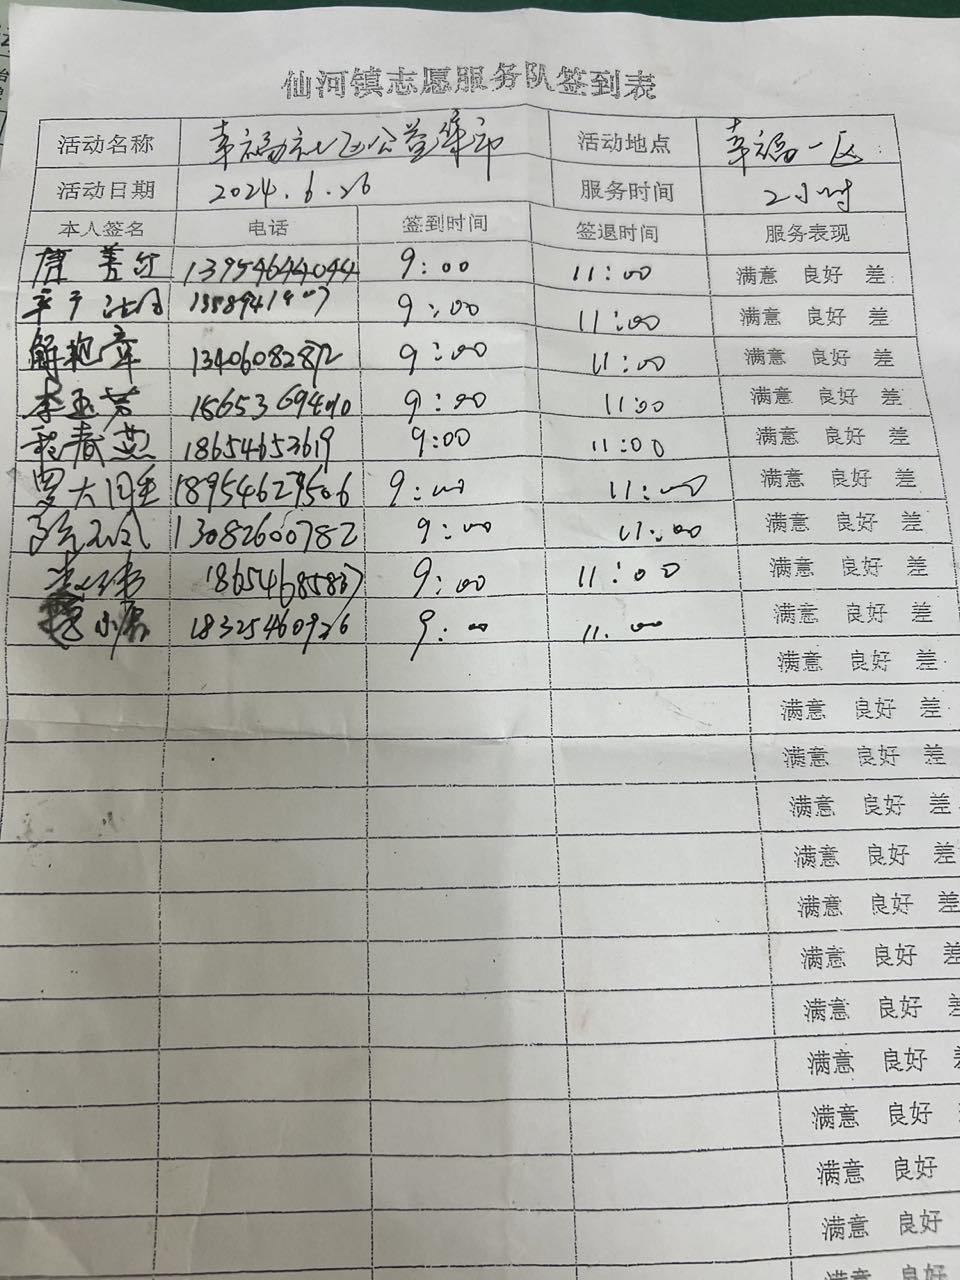 仙河镇志愿服务队签到表
活动名称 幸福社区公益集印 活动地点 幸福一区
活动日期 2024.6.26 服务时间 2小时
本人签名 电话 签到时间 签退时间 服务表现
13954644044 9:00 11:00 满意 良好 差
9:00 11:00 满意 良好 差
13406082872 9:00 11:00 满意 良好 差
李玉芳 9:00 11:00 满意 良好 差
程春燕 18654653619 9:00 11:00 满意 良好 差
18954629506 9:00 11:00 满意 良好 差
13082600782 9:00 11:00 满意 良好 差
18654685837 9:00 11:00 满意 良好 差
18325460926 9:00 11:00 满意 良好 差
满意 良好 差
满意 良好 差
满意 良好 差
满意 良好 差
满意 良好 差
满意 良好 差
满意 良好 差
满意 良好 差
满意 良好
满意 良好
满意 良好
满意 良好
满意 良好